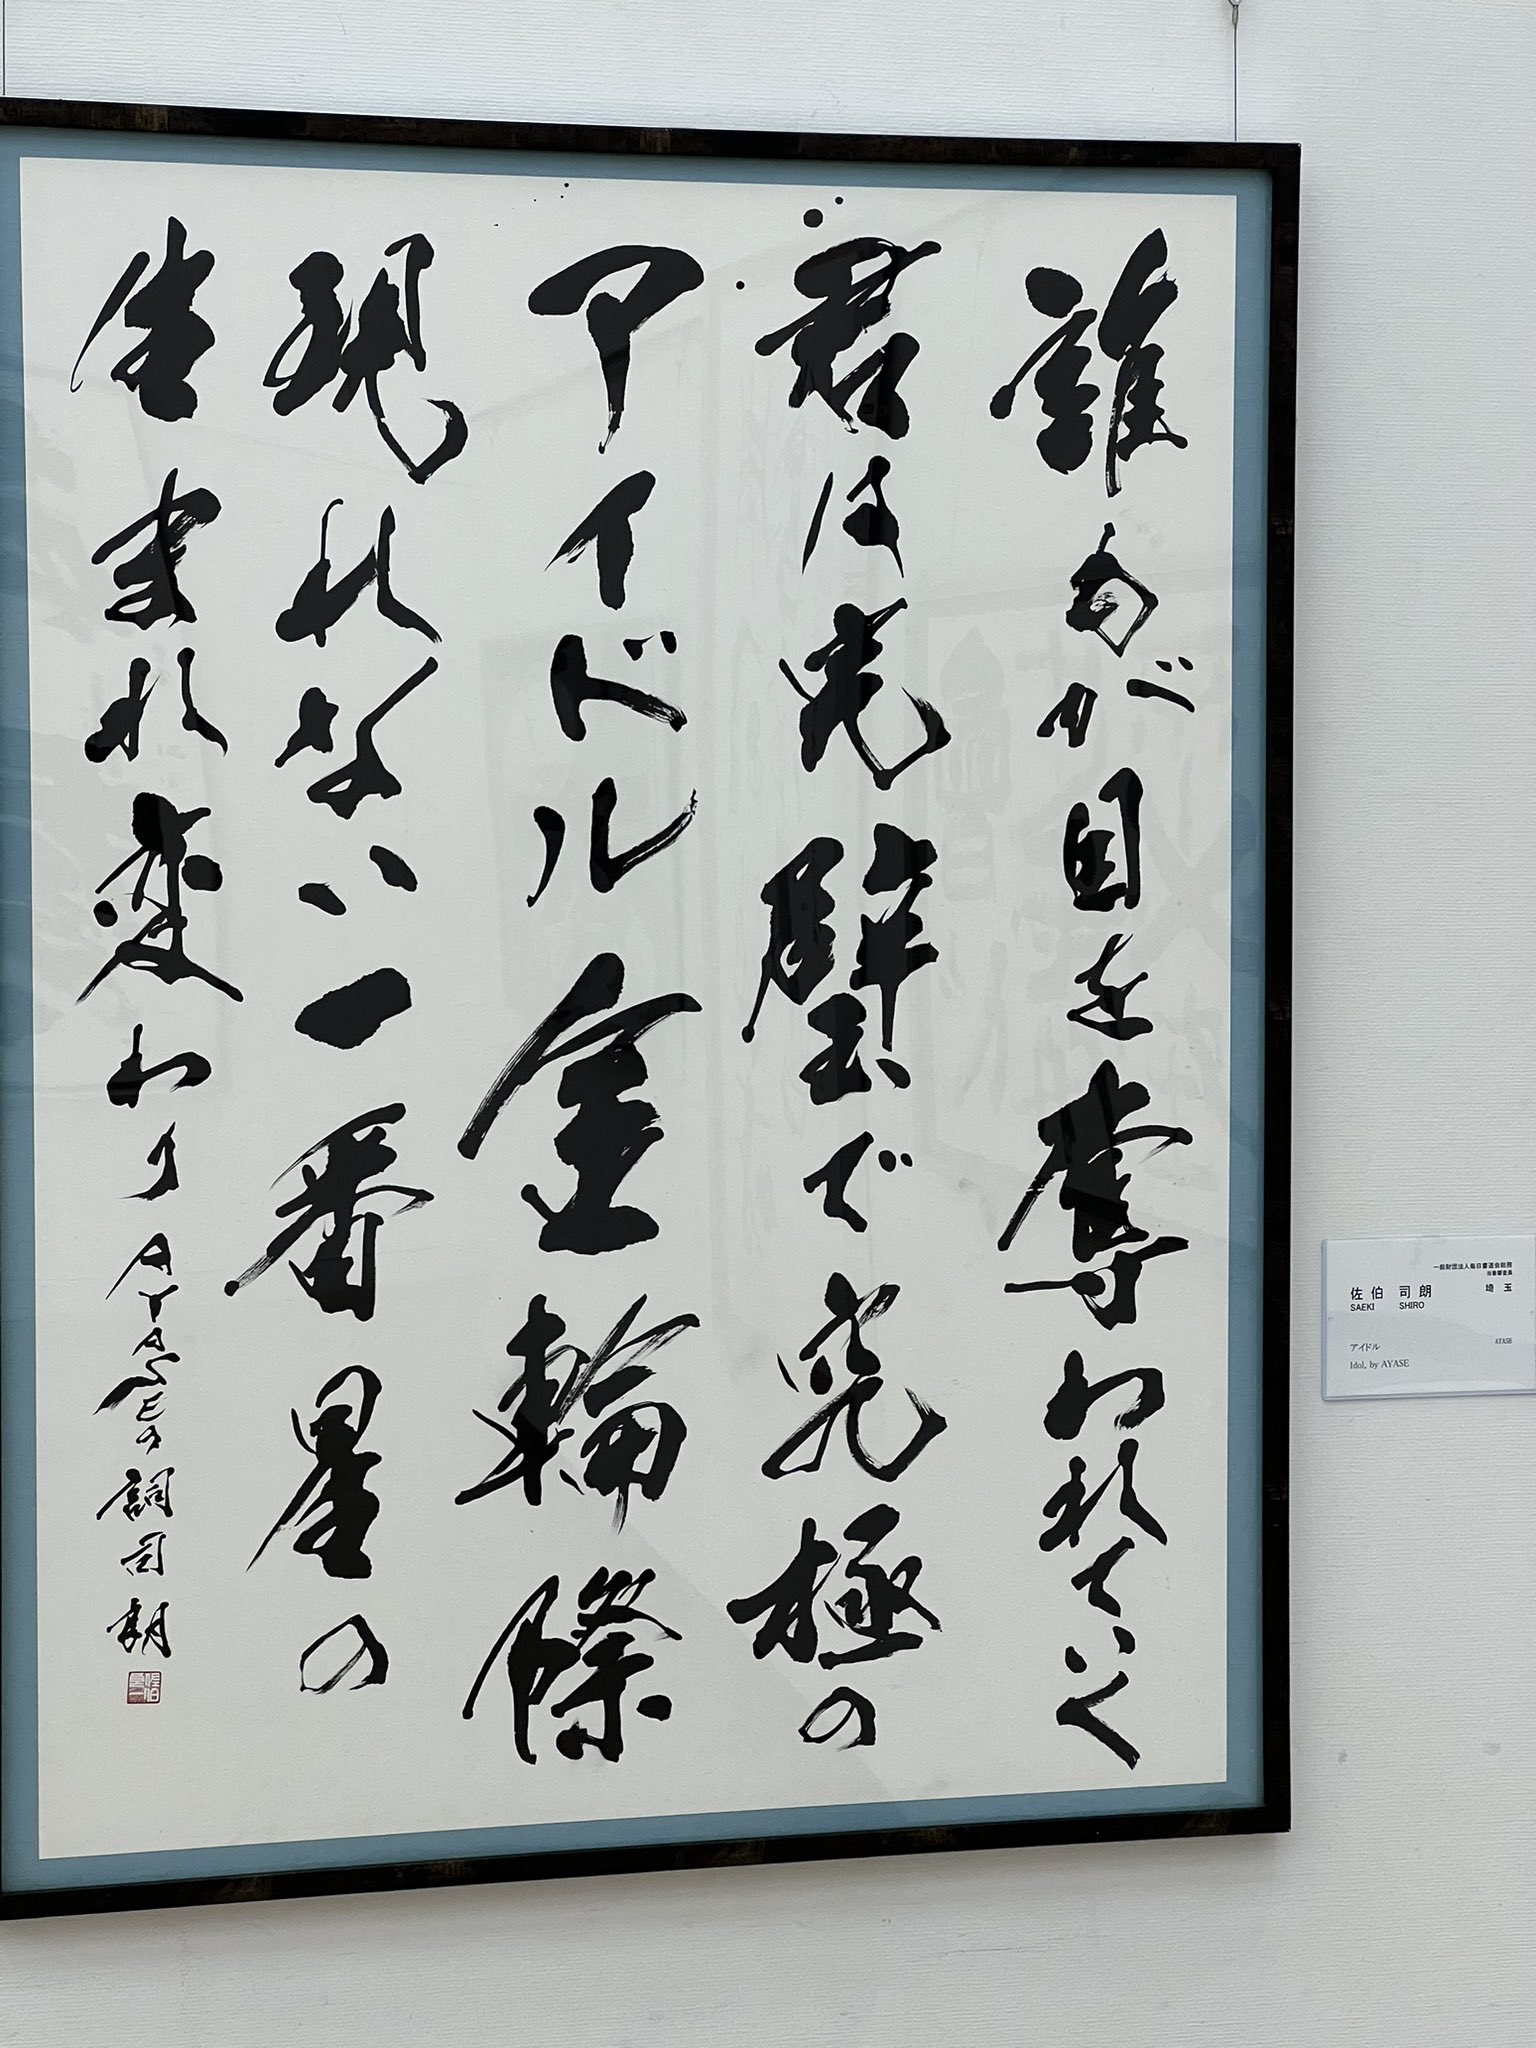 誰もが目を奪われていく
君は完璧で究極の
アイドル金輪際
現れない一番星の
生まれ変わり AYASEの詞 司朗
一般財団法人毎日書道会総務
当番審査員
佐伯 司朗 埼玉
SAEKI SHIRO
アイドル AYASE
Idol, by AYASE